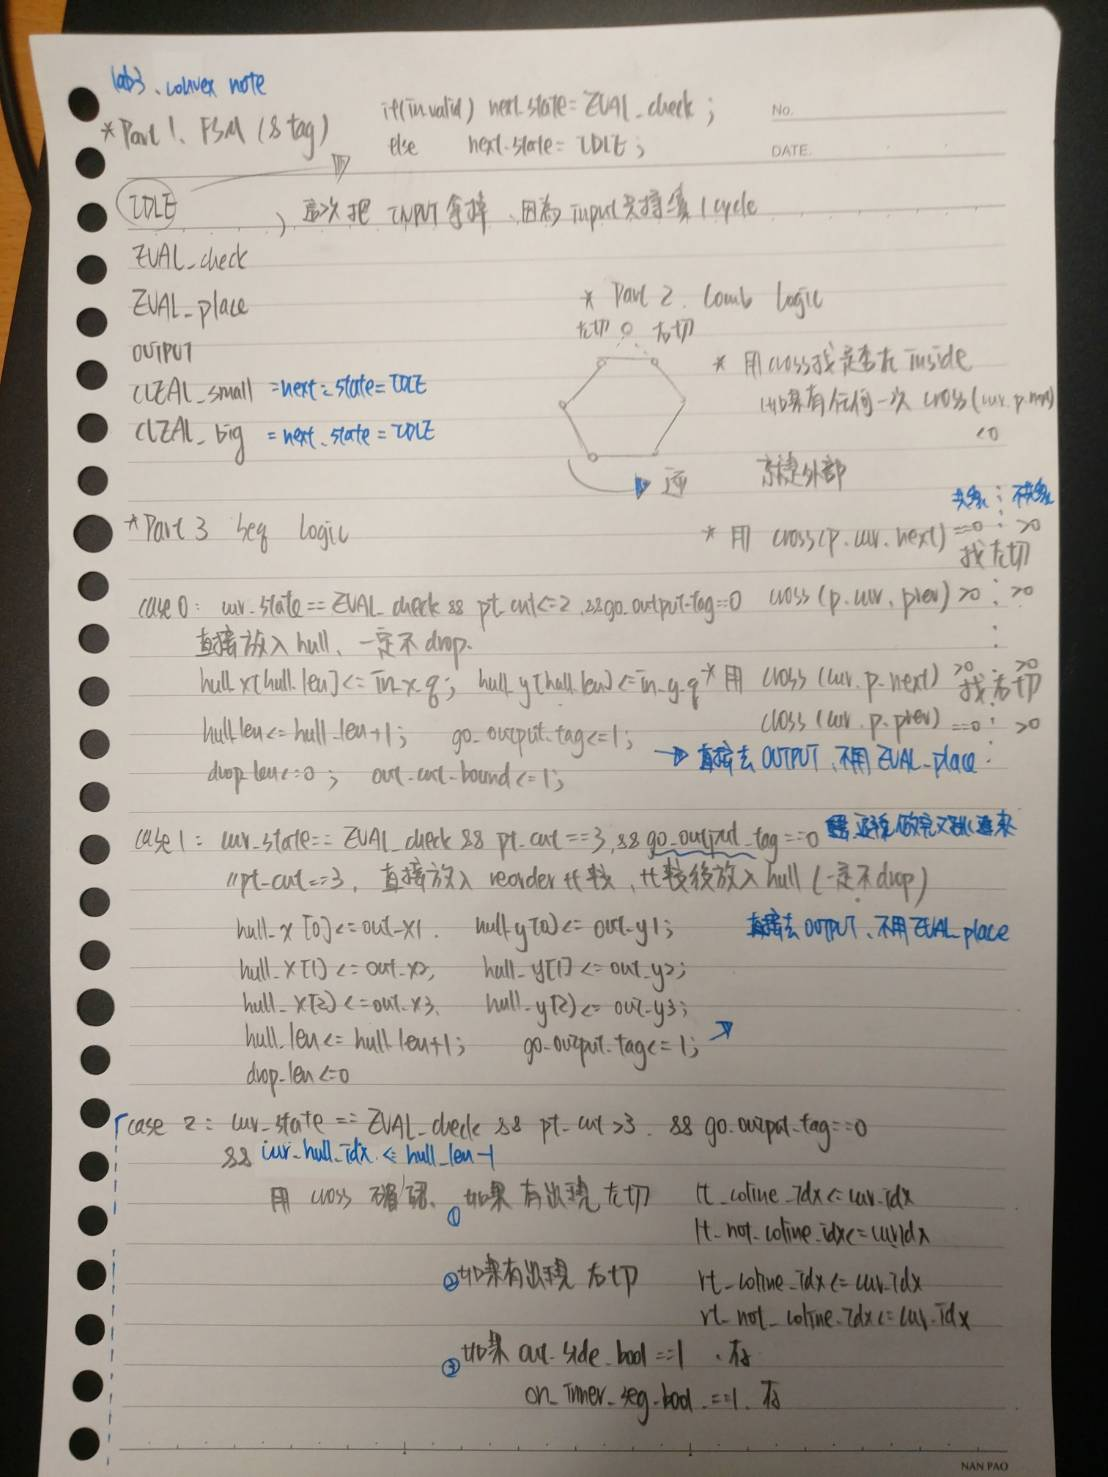 lab3、convex note
*Part 1. FSM (8 tag)
if(in_valid) next_state = EVAL_check ;
else next_state = IDLE ;
No.
DATE.
IDLE
這次把 INPUT 拿掉、因為 input 只持續 1 cycle
EVAL_check
EVAL_place
OUTPUT
CLEAL_small = next_state = IDLE
CLEAL_big = next_state = IDLE
* Part 2. Comb Logic
左切 右切
逆
* 用 cross 找是否在 inside
如果有任何一次 cross(cur.p.next)
<0
就是外部
共線 ⋮ 不共線
* 用 cross(p.cur.next) ==0 ⋮ >0
找左切
cross (p.cur, prev) >0 ⋮ >0
* 用 cross (cur.p.next) >0 ⋮ >0
找右切
cross (cur.p.prev) ==0 ⋮ >0
*Part 3 Seq Logic
case 0: cur_state == EVAL_check && pt_cnt<=2 .&&go_output_tag==0
直接放入 hull、一定不 drop.
hull_x[hull_len] <= in_x_q; hull_y[hull_len] <= in_y_q
hull_len <= hull_len+1; go_output_tag<=1;
drop_len<=0 ; out_cnt_bound<=1;
→ 直接去 OUTPUT、不用 EVAL_place
case 1: cur_state == EVAL_check && pt_cnt ==3,&& go_output_tag ==0
//pt_cnt==3, 直接放入 reorder 比較, 比較後放入 hull (一定不 drop)
hull_x [0] <= out_x1. hull_y[0] <= out_y1;
直接去 OUTPUT、不用 EVAL_place
hull_x[1] <= out_x2, hull_y[1] <= out_y2;
hull_x[2] <= out_x3. hull_y[2] <= out_y3;
hull_len <= hull_len+1; go_output_tag<=1;
drop_len <=0
case 2: cur_state == EVAL_check && pt_cnt >3. && go_output_tag==0
&& cur_hull_idx <= hull_len-1
用 cross 確認、①如果有出現左切 lt_coline_idx <= cur_idx
lt_not_coline_idx<=cur_idx
②如果有出現右切 rt_coline_idx <= cur_idx
rt_not_coline_idx <= cur_idx
③如果 out_side_bool ==1 . 存
on_inner_seg_bool ==1. 存
NAN PAO